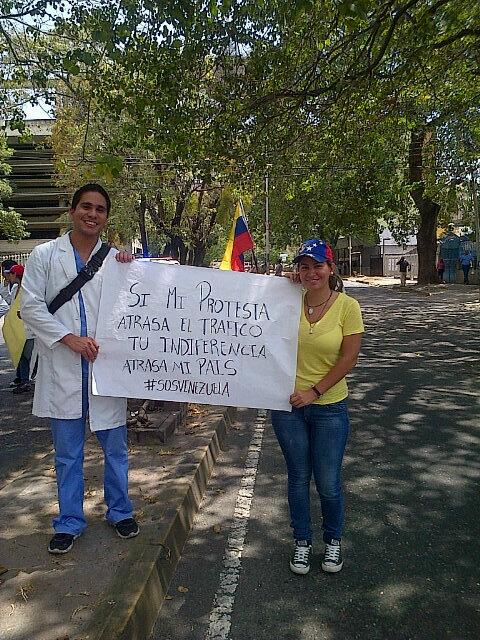 SI MI PROTESTA
ATRASA EL TRAFICO
TU INDIFERENCIA
ATRASA MI PAIS
#SOSVENEZUELA